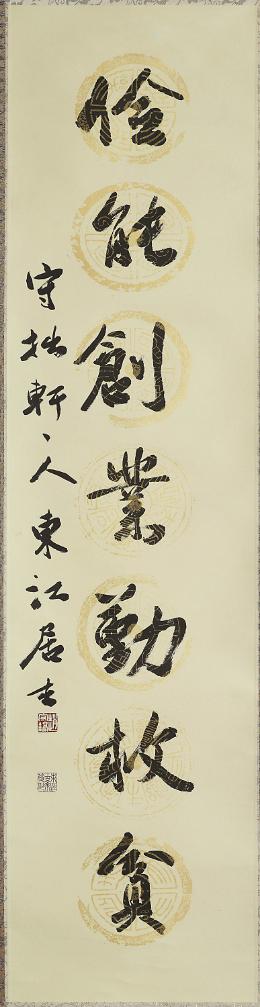 儉能創業勤救貧
守拙軒ヽ人東江居士